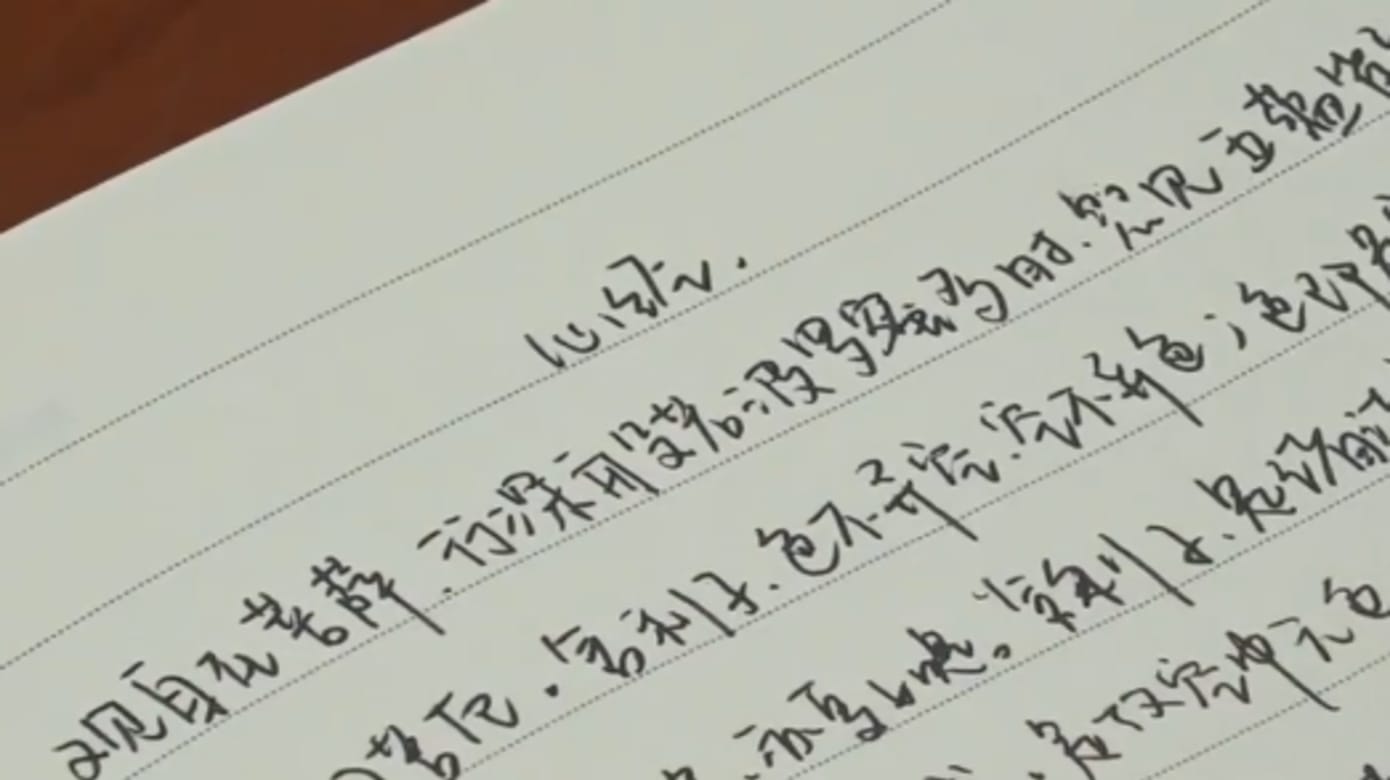 心经.
观自在菩萨.行深般若波罗蜜多时.照见五蕴皆
苦厄.舍利子.色不异空.空不异色;色即是
亦复如是。舍利子.是诸法
是故空中无色